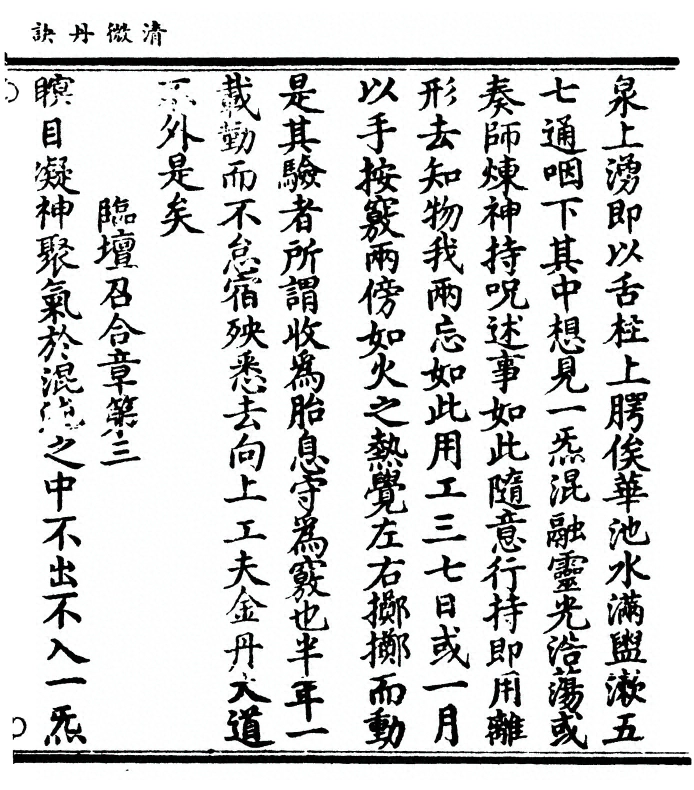 清微丹訣
泉上湧即以舌柱上腭俟華池水滿盥漱五
七通咽下其中想見一炁混融靈光浩蕩或
奏師煉神持呪述事如此隨意行持即用離
形去知物我兩忘如此用工三七日或一月
以手按竅兩傍如火之熱覺左右擲擲而動
是其驗者所謂收為胎息守為竅也半年一
載勤而不怠宿殃悉去向上工夫金丹大道
外是矣
臨壇召合章第三
瞑目凝神聚氣於混之中不出不入一炁